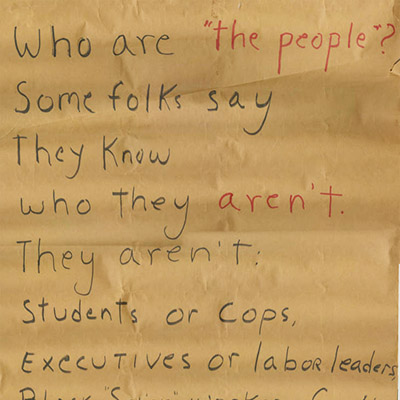 Who are "the people"?
Some folks say
They Know
who They aren't.
They aren't:
Students or Cops,
Executives or labor leaders,